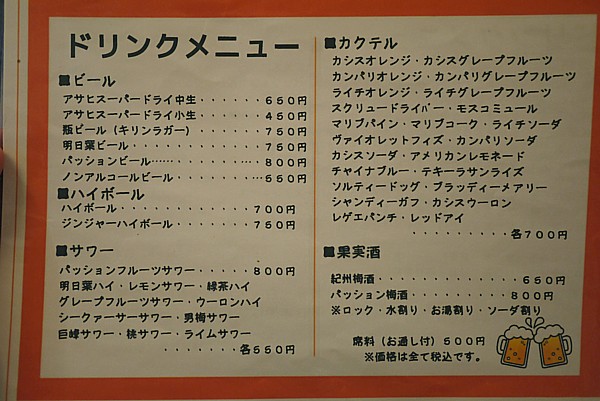 ドリンクメニュー
■ビール
アサヒスーパードライ中生・・・・・・650円
アサヒスーパードライ小生・・・・・・450円
瓶ビール(キリンラガー)・・・・・・・750円
明日葉ビール・・・・・・・・・・・750円
パッションビール……・・・・・・…・800円
ノンアルコールビール・・・・・・・…550円
■ハイボール
ハイボール・・・・・・・・・・・・700円
ジンジャーハイボール・・・・・・・750円
■サワー
パッションフルーツサワー・・・・・800円
明日葉ハイ・レモンサワー・緑茶ハイ
グレープフルーツサワー・ウーロンハイ
シークァーサーサワー・男梅サワー
巨峰サワー・桃サワー・ライムサワー
・・・・・・・各550円
■カクテル
カシスオレンジ・カシスグレープフルーツ
カンパリオレンジ・カンパリグレープフルーツ
ライチオレンジ・ライチグレープフルーツ
スクリュードライバー・モスコミュール
マリブパイン・マリブコーク・ライチソーダ
ヴァイオレットフィズ・カンパリソーダ
カシスソーダ・アメリカンレモネード
チャイナブルー・テキーラサンライズ
ソルティードッグ・ブラッディーメアリー
シャンディーガフ・カシスウーロン
レゲエパンチ・レッドアイ
・・・・・・・・・各700円
■果実酒
紀州梅酒・・・・・・・・・・・・・650円
パッション梅酒・・・・・・・・・800円
※ロック・水割り・お湯割り・ソーダ割り
席料(お通し付)500円
※価格は全て税込です。